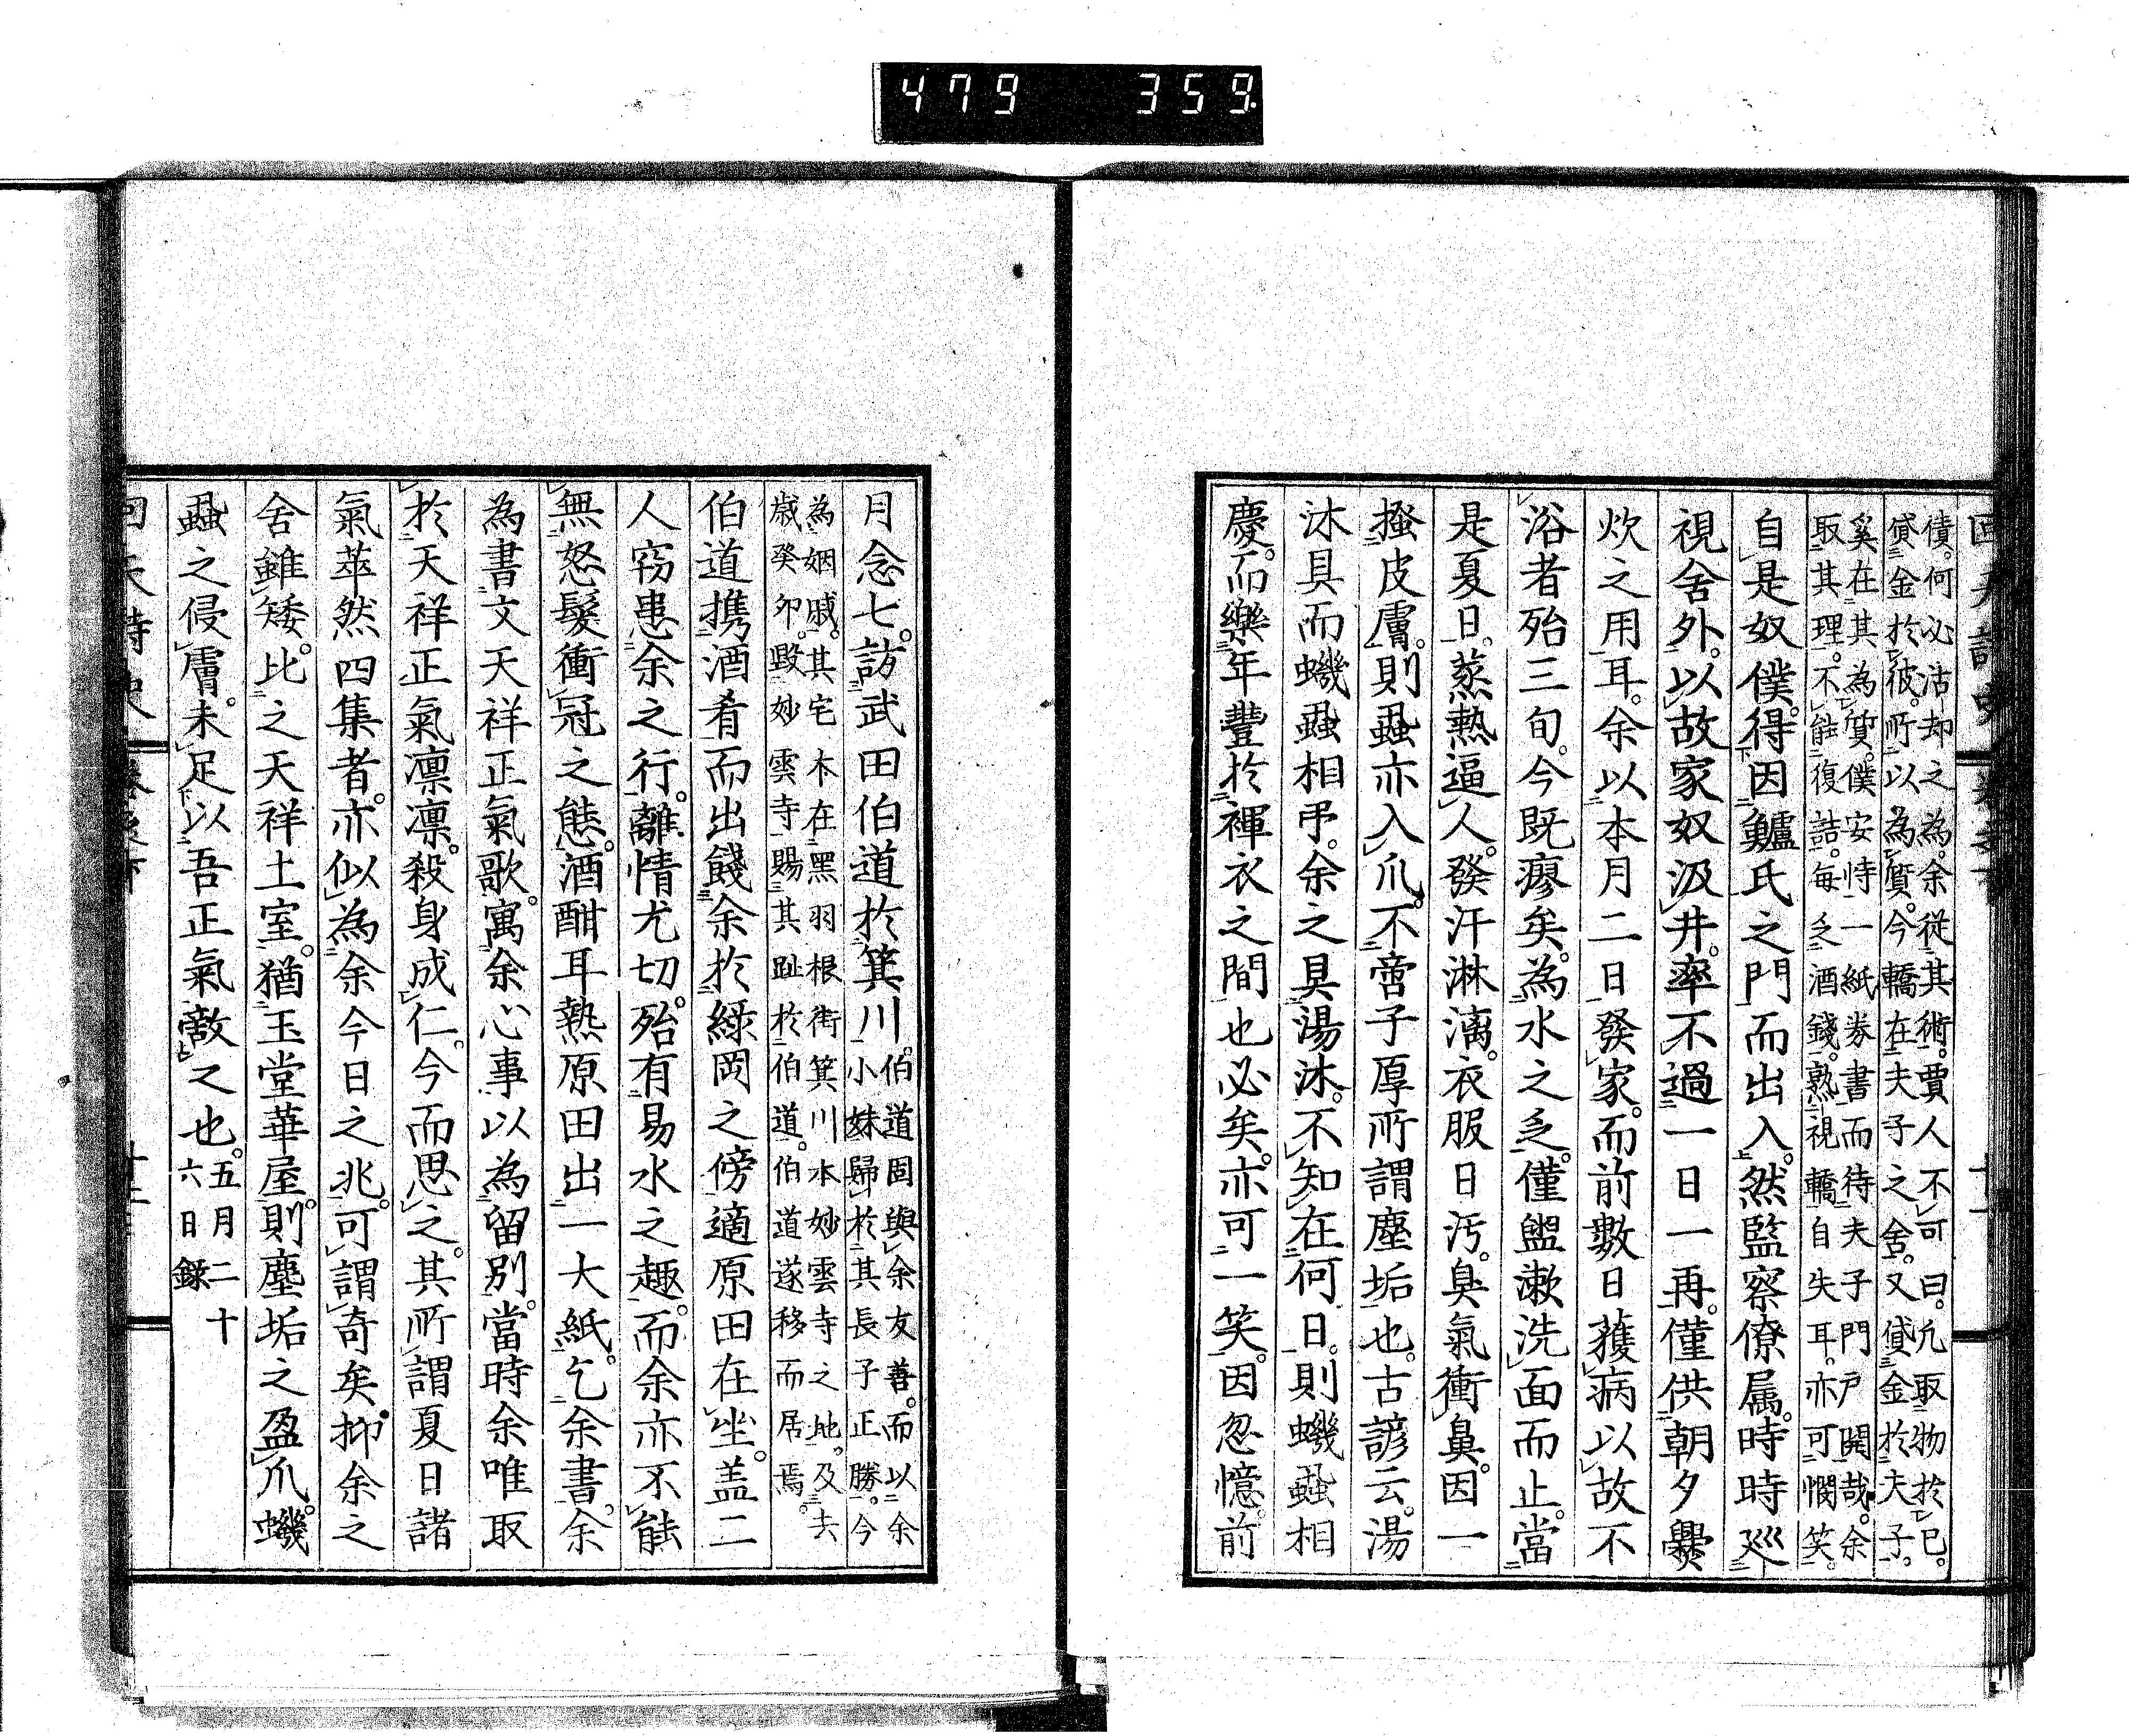 479 359
債。何必沽却之為。余從其術。賈人不可曰。凢取物於已。
貸金於彼。所以為質。今轎在夫子之舍。又貸金於夫子。
奚在其為質。僕安恃一紙券書而待夫子門戸開哉。余
取其理。不能復詰。毎乏酒錢。熟視轎自失耳。亦可憫笑。
自是奴僕。得因鱸氏之門而出入。然監察僚属。時時廵
視舍外。以故家奴汲井。率不過一日一再。僅供朝夕爨
炊之用耳。余以本月二日發家。而前數日獲病以故不
浴者殆三旬。今既瘳矣。為水之乏。僅盥漱洗面而止。當
是夏日。蒸熱逼人。發汗淋漓。衣服日汚。臭氣衝鼻。因一
搔皮膚。則蝨亦入爪。不啻子厚所謂塵垢也。古諺云。湯
沐具而蟣蝨相弔。余之具湯沐。不知在何日。則蟣蝨相
慶。而樂年豐於褌衣之間也必矣。亦可一笑。因忽憶。前
月念七。訪武田伯道於箕川。伯道固與余友善。而以余
小妹歸於其長子正勝。今
為姻戚。其宅本在黑羽根街箕川本妙雲寺之地。及去
歲癸卯。毀妙雲寺賜其趾於伯道。伯道遂移而居焉。
伯道携酒肴而出餞余於綠岡之傍適原田在坐。盖二
人窃患余之行。離情尤切。殆有易水之趣。而余亦不能
無怒髮衝冠之態。酒酣耳熱原田出一大紙。乞余書。余
為書文天祥正氣歌。寓余心事以為留別。當時余唯取
於天祥正氣凛凛。殺身成仁。今而思之。其所謂夏日諸
氣萃然四集者。亦似為余今日之兆。可謂奇矣。抑余之
舍雖矮。比之天祥土室。猶玉堂華屋。則塵垢之盈爪。蟣
蝨之侵膚。未足以吾正氣敵之也。五月二十
六日錄